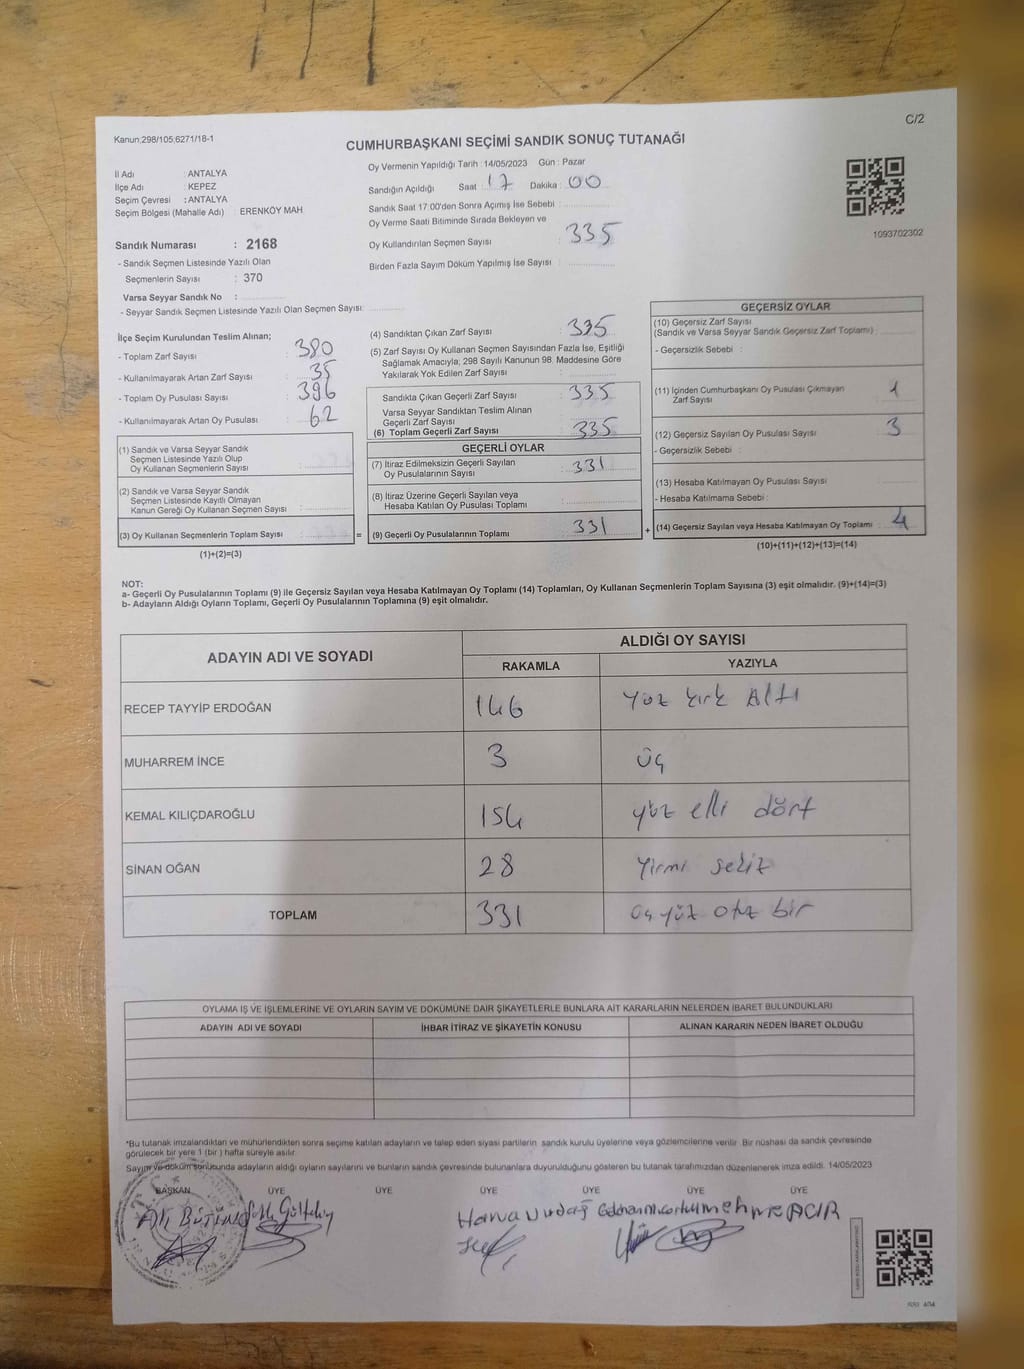 C/2
Kanun,298/105;6271/18-1
CUMHURBAŞKANI SEÇİMİ SANDIK SONUÇ TUTANAĞI
Oy Vermenin Yapıldığı Tarih : 14/05/2023 Gün : Pazar
İl Adı : ANTALYA
İlçe Adı : KEPEZ
Seçim Çevresi : ANTALYA
Seçim Bölgesi (Mahalle Adı) : ERENKÖY MAH
Sandığın Açıldığı Saat : 17 Dakika : 00
Sandık Saat 17:00'den Sonra Açımış İse Sebebi :
Oy Verme Saati Bitiminde Sırada Bekleyen ve
Oy Kullandırılan Seçmen Sayısı : 335
Birden Fazla Sayım Döküm Yapılmış İse Sayısı :
1093702302
Sandık Numarası : 2168
- Sandık Seçmen Listesinde Yazılı Olan
Seçmenlerin Sayısı : 370
Varsa Seyyar Sandık No :
- Seyyar Sandık Seçmen Listesinde Yazılı Olan Seçmen Sayısı:
İlçe Seçim Kurulundan Teslim Alınan;
- Toplam Zarf Sayısı : 380
- Kullanılmayarak Artan Zarf Sayısı : 35
- Toplam Oy Pusulası Sayısı : 396
- Kullanılmayarak Artan Oy Pusulası : 62
(1) Sandık ve Varsa Seyyar Sandık
Seçmen Listesinde Yazılı Olup
Oy Kullanan Seçmenlerin Sayısı :
(2) Sandık ve Varsa Seyyar Sandık
Seçmen Listesinde Kayıtlı Olmayan
Kanun Gereği Oy Kullanan Seçmen Sayısı :
(3) Oy Kullanan Seçmenlerin Toplam Sayısı :
(1)+(2)=(3)
(4) Sandıktan Çıkan Zarf Sayısı : 335
(5) Zarf Sayısı Oy Kullanan Seçmen Sayısından Fazla İse, Eşitliği
Sağlamak Amacıyla; 298 Sayılı Kanunun 98. Maddesine Göre
Yakılarak Yok Edilen Zarf Sayısı :
Sandıkta Çıkan Geçerli Zarf Sayısı : 335
Varsa Seyyar Sandıktan Teslim Alınan
Geçerli Zarf Sayısı :
(6) Toplam Geçerli Zarf Sayısı : 335
GEÇERLİ OYLAR
(7) İtiraz Edilmeksizin Geçerli Sayılan
Oy Pusulalarının Sayısı : 331
(8) İtiraz Üzerine Geçerli Sayılan veya
Hesaba Katılan Oy Pusulası Toplamı :
= (9) Geçerli Oy Pusulalarının Toplamı : 331 +
GEÇERSİZ OYLAR
(10) Geçersiz Zarf Sayısı
(Sandık ve Varsa Seyyar Sandık Geçersiz Zarf Toplamı) :
- Geçersizlik Sebebi :
(11) İçinden Cumhurbaşkanı Oy Pusulası Çıkmayan
Zarf Sayısı : 1
(12) Geçersiz Sayılan Oy Pusulası Sayısı : 3
- Geçersizlik Sebebi :
(13) Hesaba Katılmayan Oy Pusulası Sayısı :
- Hesaba Katılmama Sebebi :
(14) Geçersiz Sayılan veya Hesaba Katılmayan Oy Toplamı : 4
(10)+(11)+(12)+(13)=(14)
NOT:
a- Geçerli Oy Pusulalarının Toplamı (9) ile Geçersiz Sayılan veya Hesaba Katılmayan Oy Toplamı (14) Toplamları, Oy Kullanan Seçmenlerin Toplam Sayısına (3) eşit olmalıdır. (9)+(14)=(3)
b- Adayların Aldığı Oyların Toplamı, Geçerli Oy Pusulalarının Toplamına (9) eşit olmalıdır.
ADAYIN ADI VE SOYADI ALDIĞI OY SAYISI
RAKAMLA YAZIYLA
RECEP TAYYİP ERDOĞAN 146 Yüz kırk Altı
MUHARREM İNCE 3 üç
KEMAL KILIÇDAROĞLU 154 yüz elli dört
SİNAN OĞAN 28 Yirmi sekiz
TOPLAM 331 üç yüz otuz bir
OYLAMA İŞ VE İŞLEMLERİNE VE OYLARIN SAYIM VE DÖKÜMÜNE DAİR ŞİKAYETLERLE BUNLARA AİT KARARLARIN NELERDEN İBARET BULUNDUKLARI
ADAYIN ADI VE SOYADI İHBAR İTİRAZ VE ŞİKAYETİN KONUSU ALINAN KARARIN NEDEN İBARET OLDUĞU
*Bu tutanak imzalandıktan ve mühürlendikten sonra seçime katılan adayların ve talep eden siyasi partilerin sandık kurulu üyelerine veya gözlemcilerine verilir. Bir nüshası da sandık çevresinde
görülecek bir yere 1 (bir) hafta süreyle asılır.
Sayım ve döküm sonucunda adayların aldığı oyların sayılarını ve bunların sandık çevresinde bulunanlara duyurulduğunu gösteren bu tutanak tarafımızdan düzenlenerek imza edildi. 14/05/2023
BAŞKAN ÜYE ÜYE ÜYE ÜYE ÜYE ÜYE
Hava mehmet ACIR